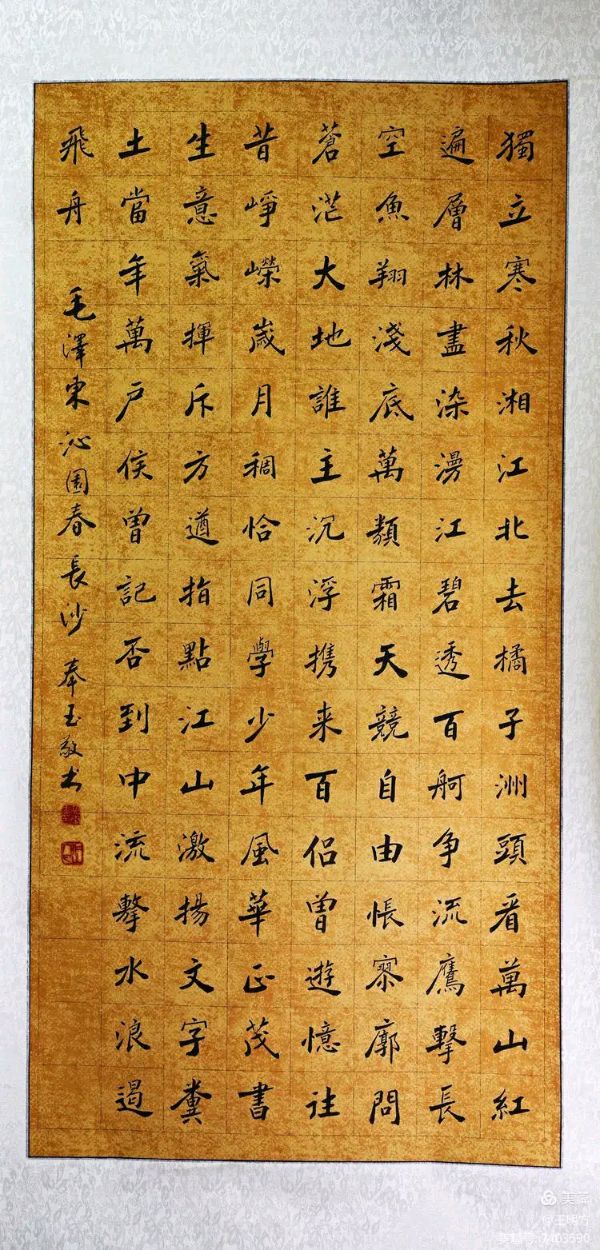 獨立寒秋湘江北去橘子洲頭看萬山紅
遍層林盡染漫江碧透百舸争流鷹擊長
空魚翔淺底萬類霜天競自由悵寥廓問
蒼茫大地誰主沉浮携来百侣曾遊憶往
昔崢嶸歲月稠恰同學少年風華正茂書
生意氣揮斥方遒指點江山激揚文字糞
土當年萬户侯曾記否到中流擊水浪遏
飛舟 毛澤東沁園春長沙 奉玉敬书
美篇